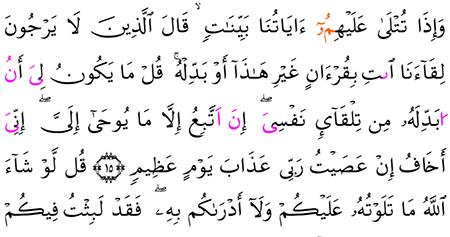 وَإِذَا تُتْلَىٰ عَلَيْهِمُۥٓ ءَايَاتُنَا بَيِّنَٰتٖ قَالَ ٱلَّذِينَ لَا يَرْجُونَ
لِقَآءَنَا ٱتِ بِقُرْءَانٍ غَيْرِ هَٰذَآ أَوْ بَدِّلْهُۚ قُلْ مَا يَكُونُ لِيَ أَنُ
ا۟بَدِّلَهُۥ مِن تِلْقَآءِےْ نَفْسِيَۖ إِنَ اَتَّبِعُ إِلَّا مَا يُوحَىٰٓ إِلَيَّۖ إِنِّيَ
أَخَافُ إِنْ عَصَيْتُ رَبِّي عَذَابَ يَوْمٍ عَظِيمٖ ۝١٥ قُل لَّوْ شَآءَ
ٱللَّهُ مَا تَلَوْتُهُۥ عَلَيْكُمْ وَلَآ أَدْرَىٰكُم بِهِۦۖ فَقَدْ لَبِثْتُ فِيكُمْ